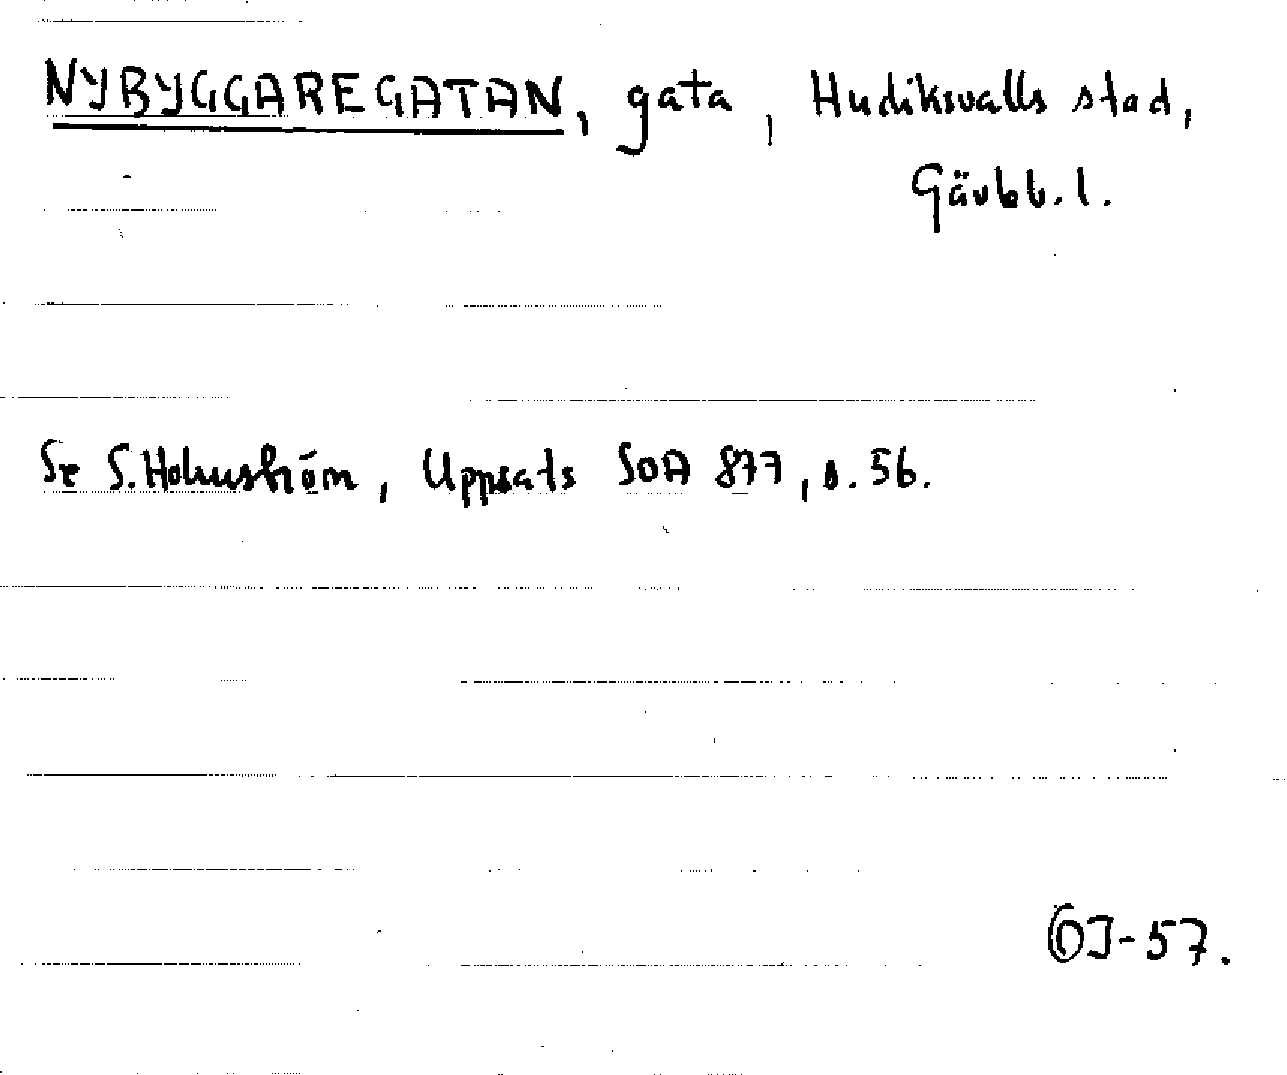 NYBYGGAREGATAN, gata, Hudiksvalls stad,
Gävleb. l.
Se S. Holmström, Uppsats SOA 877, s. 56.
OJ-57.